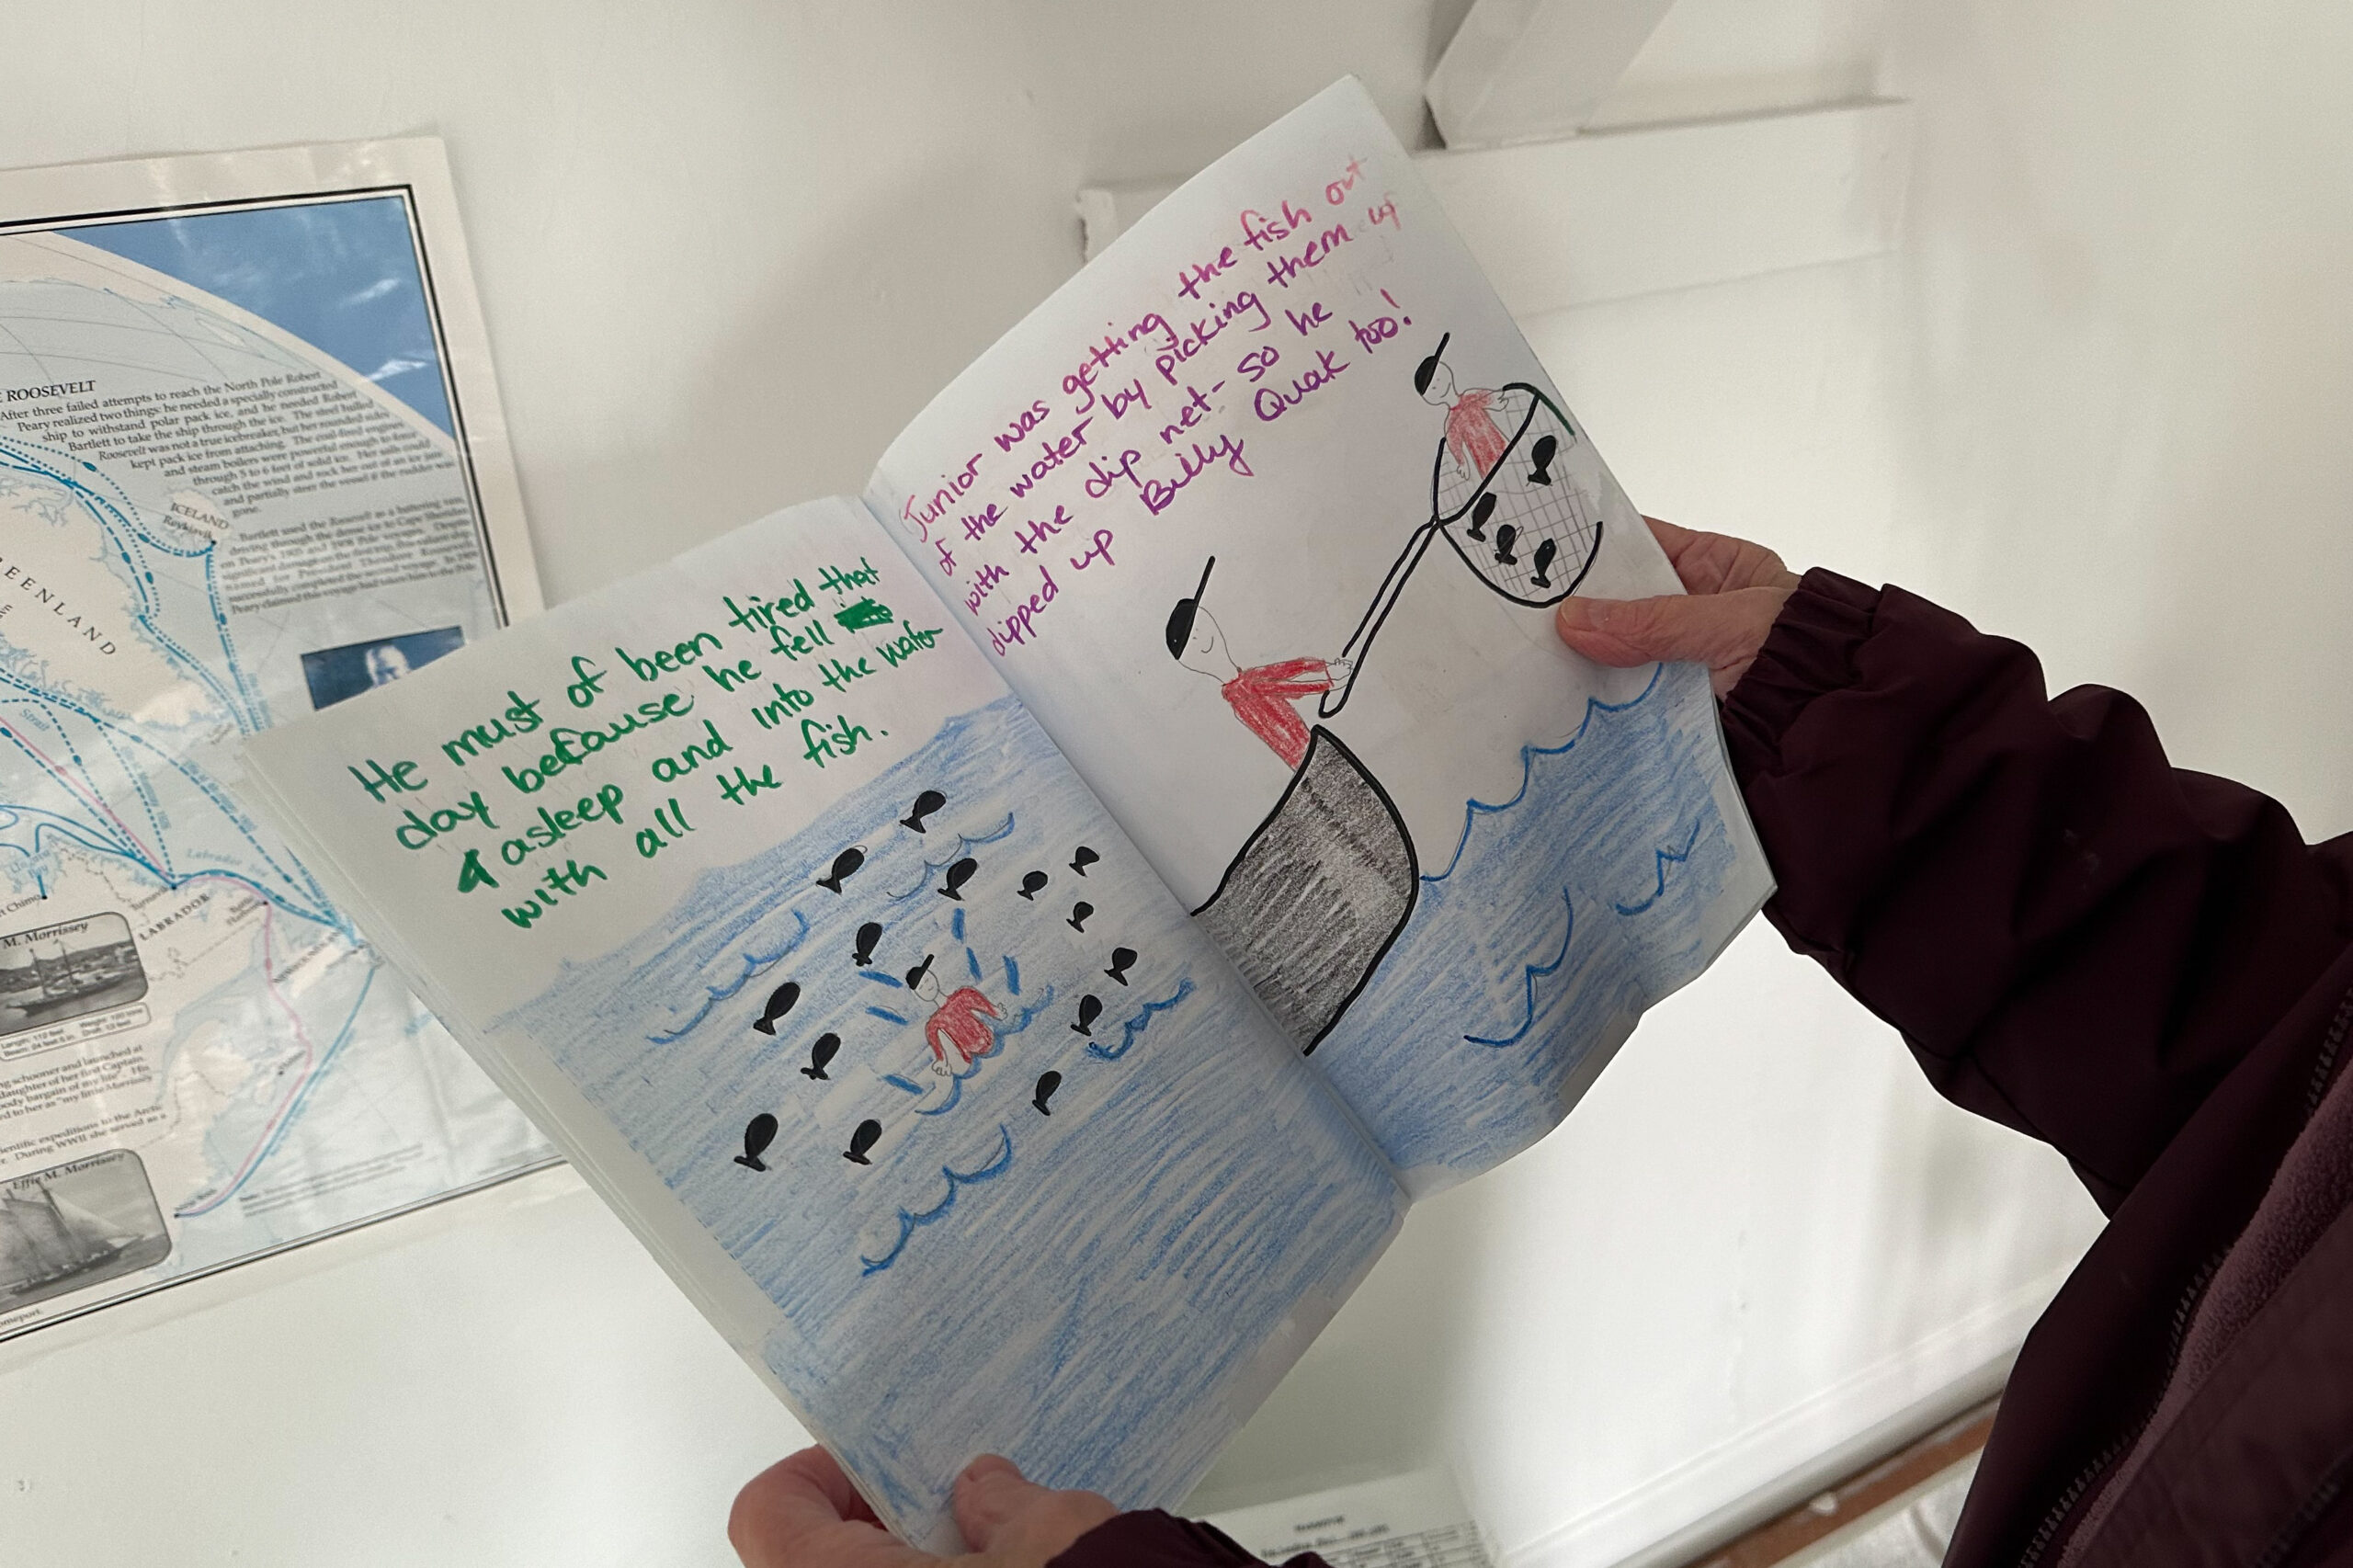 He must of been tired that
day because he fell
asleep and into the water
with all the fish.
Junior was getting the fish out
of the water by picking them up
with the dip net - so he
dipped up Billy Quak too!
ROOSEVELT
After three failed attempts to reach the North Pole Robert
Peary realized two things: he needed a specially constructed
ship to withstand polar pack ice, and he needed Robert
Bartlett to take the ship through the ice. The steel hulled
Roosevelt was not a true icebreaker, but her rounded sides
kept pack ice from attaching. The coal-fired engines
and steam boilers were powerful enough to force
through 5 to 6 feet of solid ice. Her sails could
catch the wind and rock her out of an ice jam
and partially steer the vessel if the rudder was
gone.
Bartlett used the Roosevelt as a battering ram,
ICELAND
Reykjavik
EENLAND
Strait
LABRADOR
Chimo
M. Morrissey
schooner and launched at
daughter of her first Captain.
body bargain of my life". His
to her as "my little Morrissey
expeditions to the Arctic
During WWII she served as a
Effie M. Morrissey